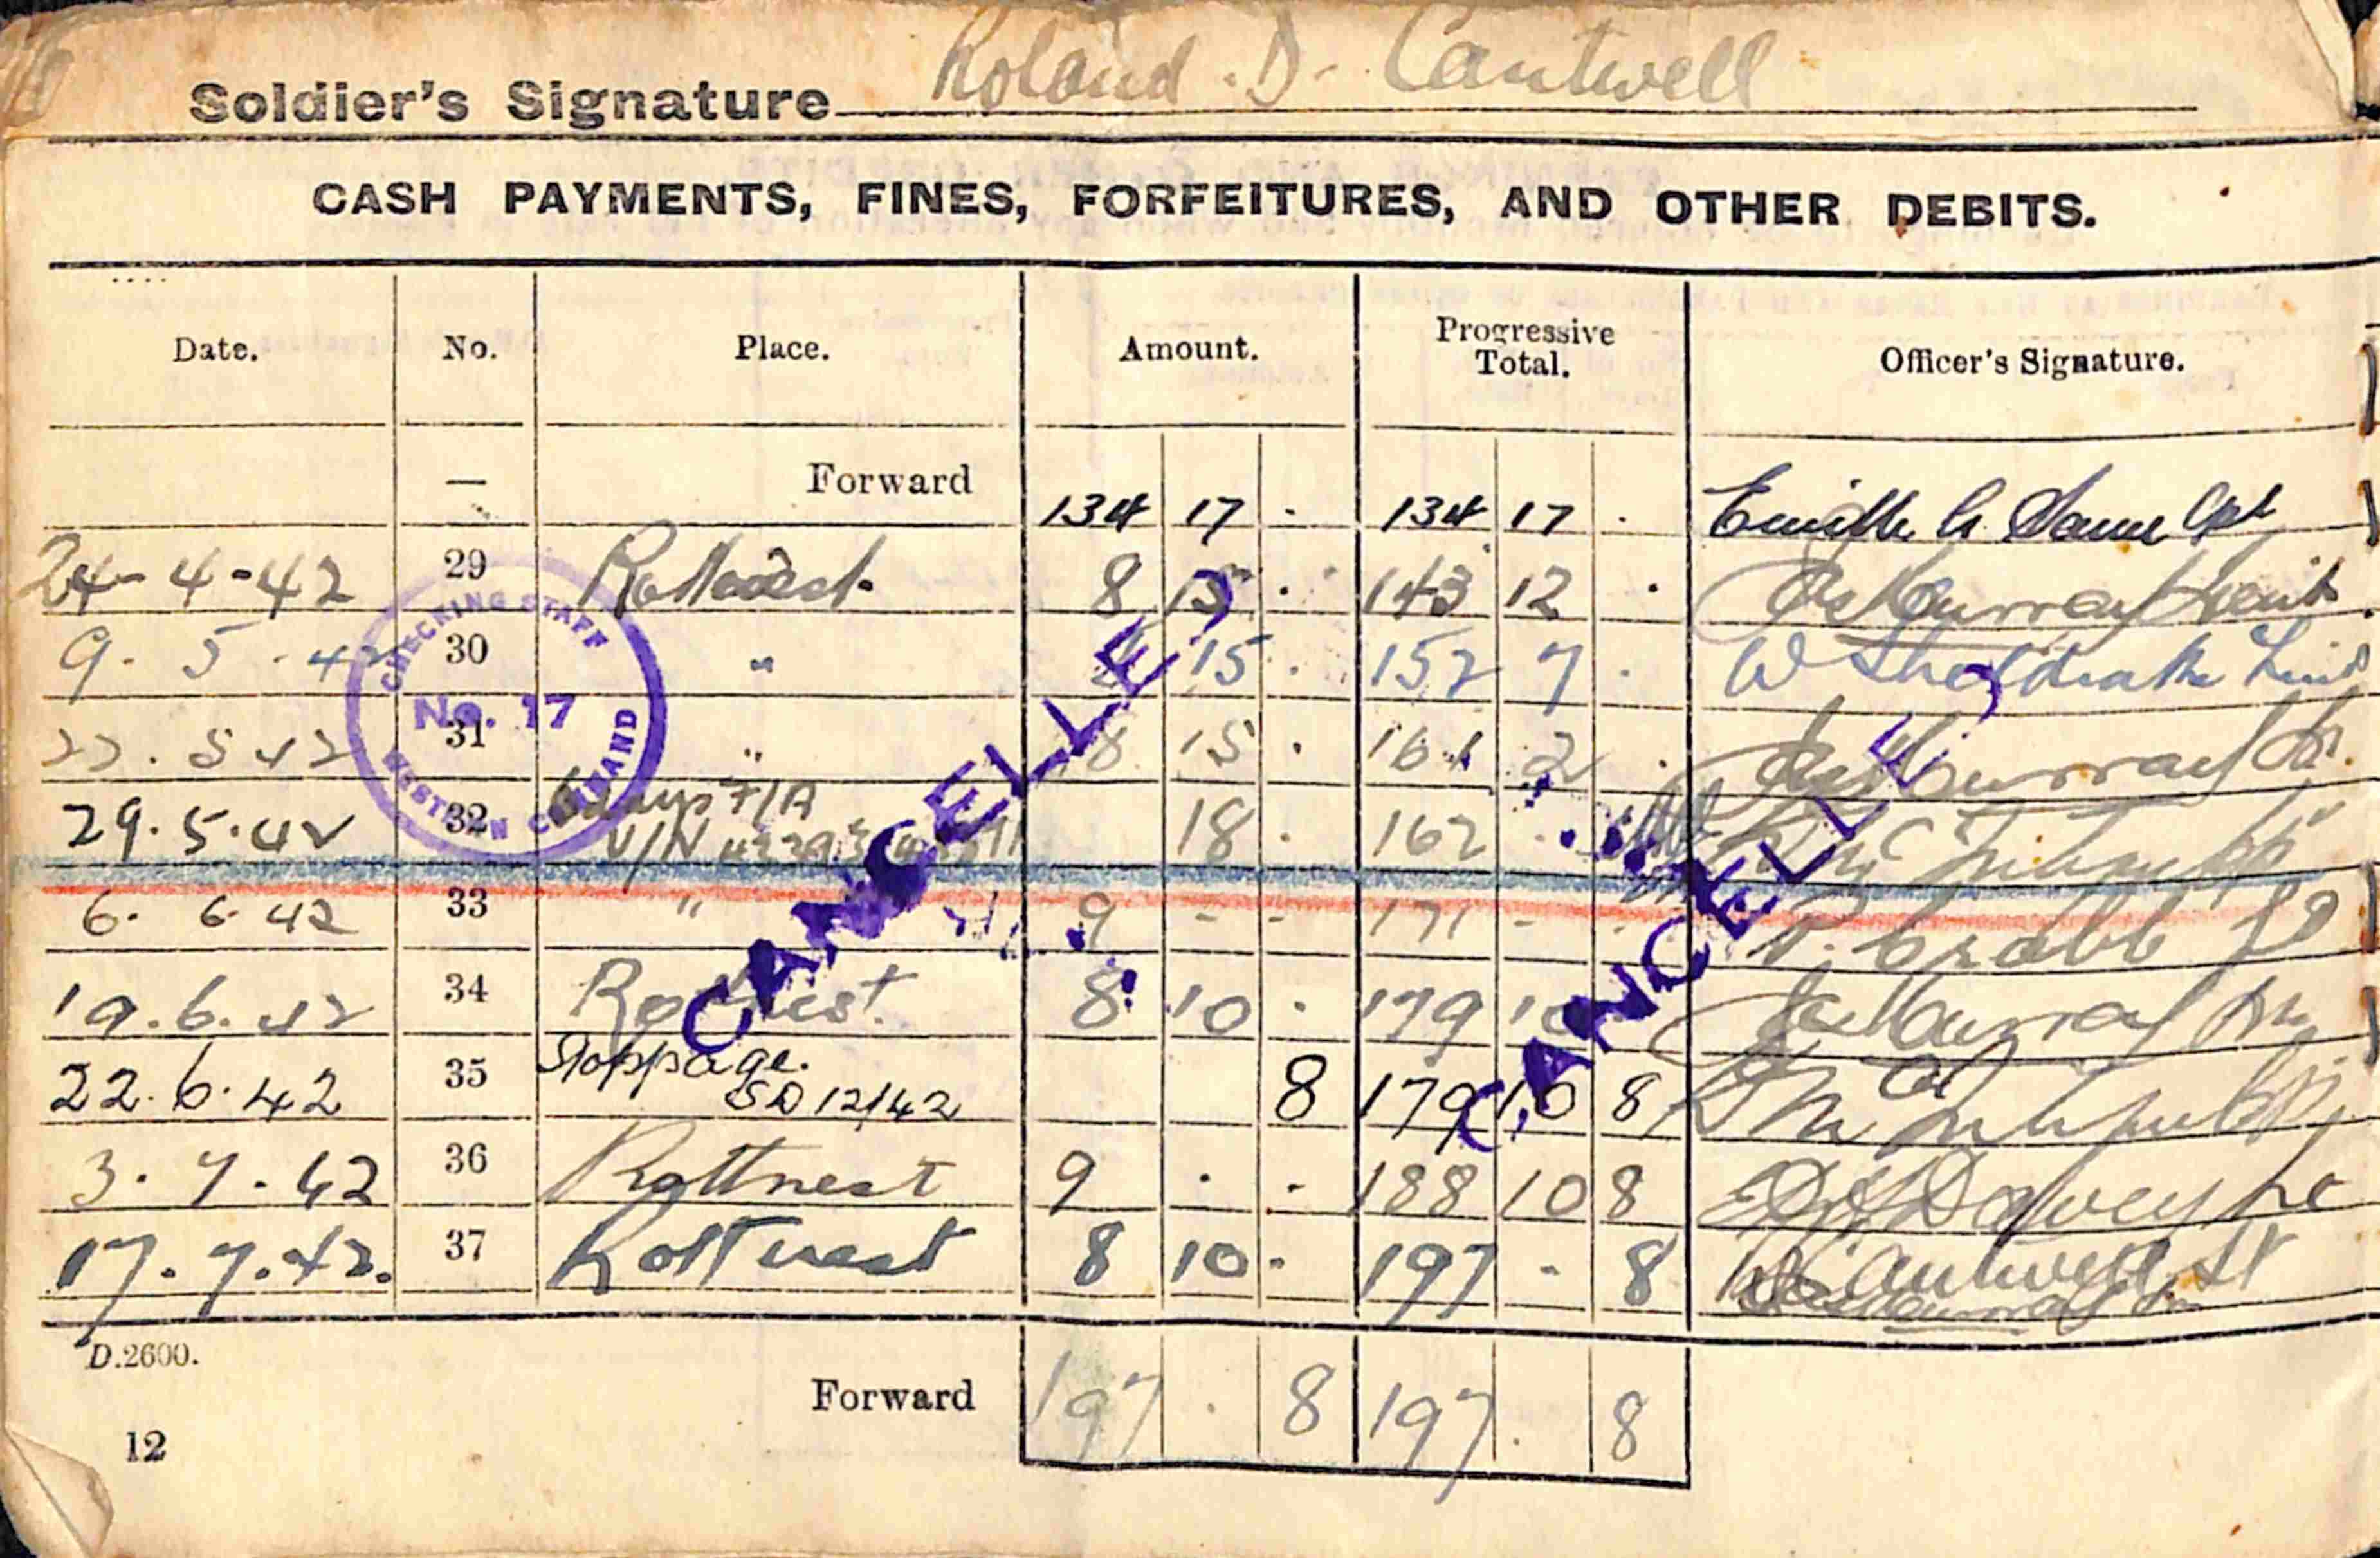 Soldier's Signature Roland . D. Cantwell
CASH PAYMENTS, FINES, FORFEITURES, AND OTHER DEBITS.
Date. No. Place. Amount. Progressive Total. Officer's Signature.
— Forward 134 17 - 134 17 .
24-4-42 29 Rottnest 8 15 . 143 12 .
9. 5. 42 30 " 15 . 152 7 . W Sheldrake
5 42 31 " 8 15 . 161 2 .
29.5.42 32 F/A V/N 18 . 162
6. 6 42 33 " 9 - - 171 - -
19.6.42 34 Rottnest. 8 10 . 179 10
22.6.42 35 Stoppage. SD 12/42 8 179 10 8
3. 7. 42 36 Rottnest 9 . . 188 10 8
17. 7. 42. 37 Rottnest 8 10 . 197 - 8 Cantwell Lt
CHECKING STAFF
No. 17
WESTERN COMMAND
CANCELLED
CANCELLED
D.2600.
Forward 197 . 8 197 . 8
12